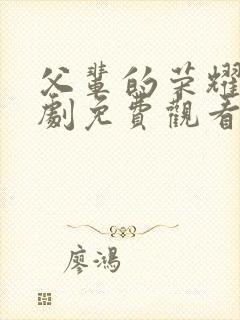 父輩的荣耀
劇免費觀看
廖鴻